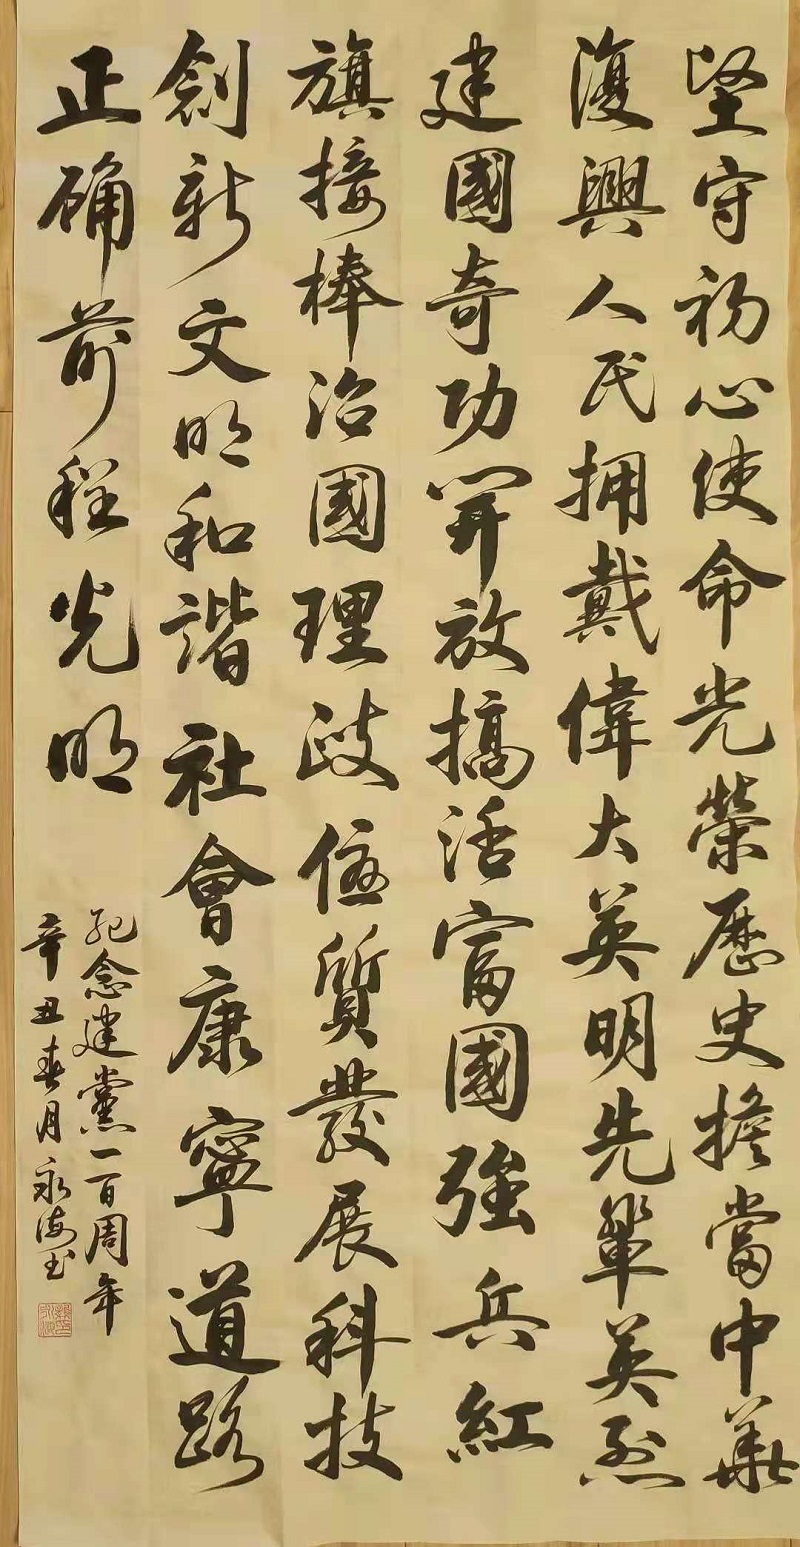 堅守初心使命光榮歷史擔當中華
復興人民拥戴偉大英明先輩英烈
建國奇功開放搞活富國強兵紅
旗接棒治國理政優質發展科技
創新文明和諧社會康寧道路
正确前程光明
紀念建黨一百周年
辛丑春月永海书